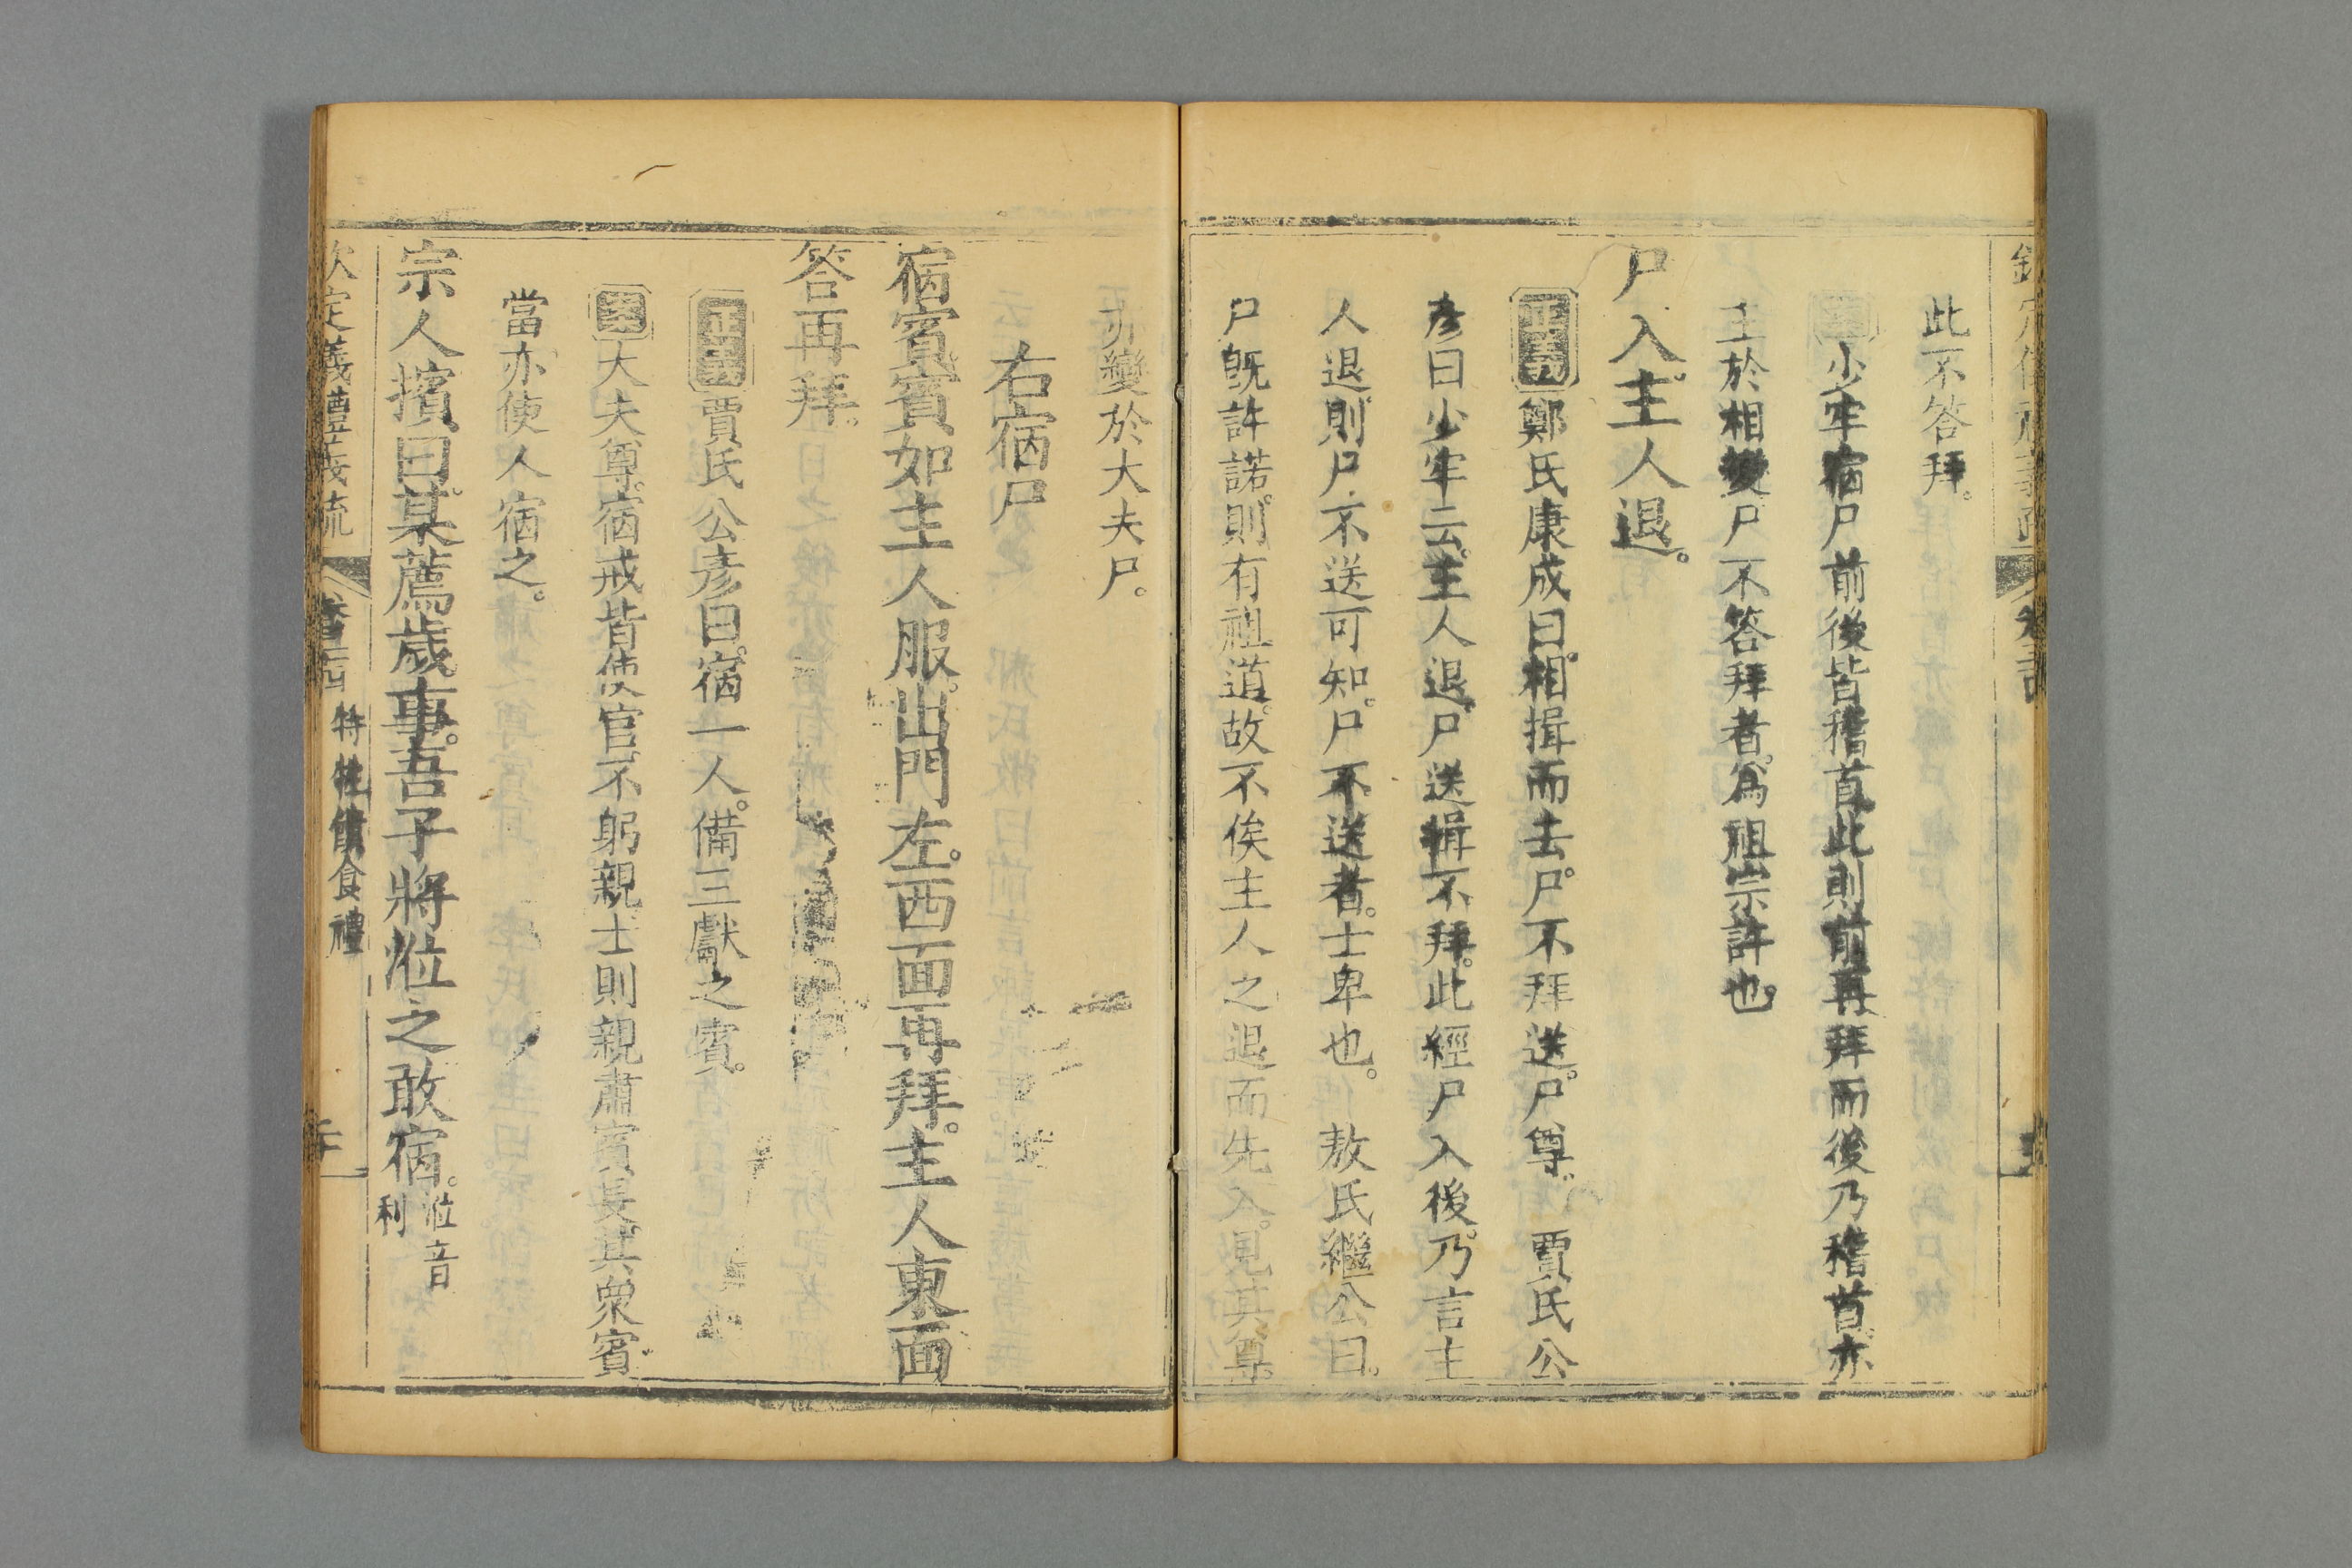 此不答拜。
小牢宿尸前後皆稽首此則前再拜而後乃稽首。亦
主於相變尸不答拜者。為祖宗許也。
尸入。主人退。
正義 鄭氏康成曰。相揖而去。尸不拜送。尸尊。 賈氏公
彥曰少牢云。主人退。尸送。揖不拜。此經尸入後。乃言主
人退。則尸不送可知。尸不送者。士卑也。 敖氏繼公曰。
尸旣許諾。則有祖道。故不俟主人之退而先入。見其尊
亦變於大夫尸。
右宿尸
宿賓。賓如主人服。出門左。西面再拜。主人東面
答再拜。
正義 賈氏公彥曰。宿一人。備三獻之賓。
案 大夫尊。宿戒皆使官。不躬親。士則親肅賓長。其衆賓。
當亦使人宿之。
宗人擯曰。某薦歲事。吾子將涖之。敢宿。涖音
利
欽定義禮義疏 特牲饋食禮